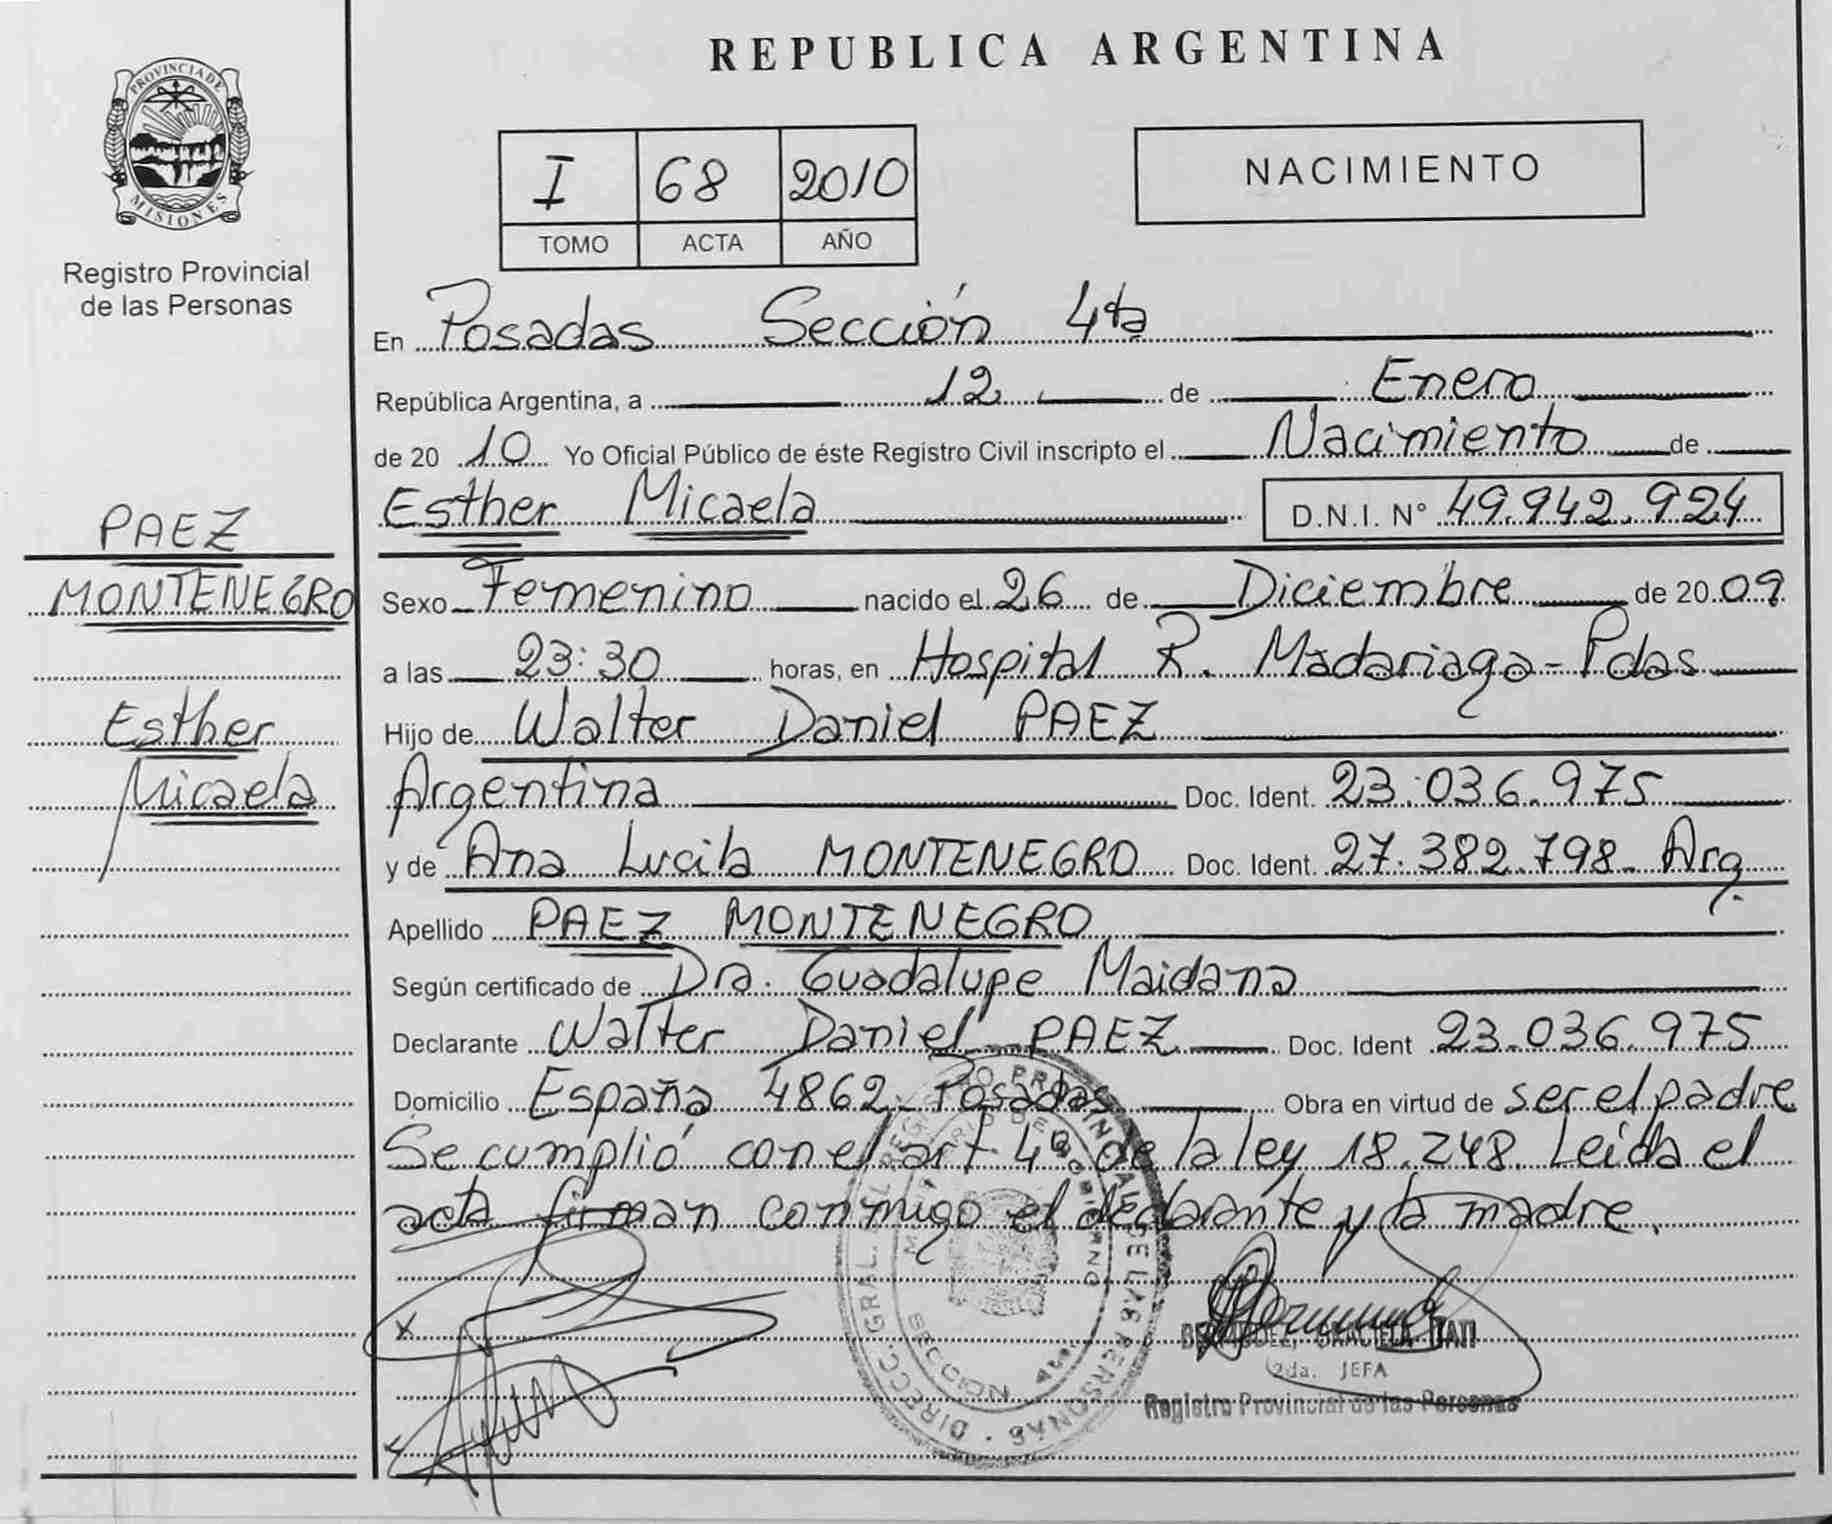 REPUBLICA ARGENTINA
PROVINCIA DE
MISIONES
Registro Provincial
de las Personas
I 68 2010
TOMO ACTA AÑO
NACIMIENTO
En Posadas Sección 4ta
República Argentina, a 12 de Enero
de 2010 Yo Oficial Público de éste Registro Civil inscripto el Nacimiento de
Esther Micaela D.N.I. N° 49.942.924
PAEZ
MONTENEGRO
Esther
Micaela
Sexo Femenino nacido el 26 de Diciembre de 2009
a las 23:30 horas, en Hospital R. Madariaga - Pdas
Hijo de Walter Daniel PAEZ
Argentina Doc. Ident. 23.036.975
y de Ana Lucila MONTENEGRO Doc. Ident. 27.382.798 - Arg.
Apellido PAEZ MONTENEGRO
Según certificado de Dra. Guadalupe Maidana
Declarante Walter Daniel PAEZ Doc. Ident 23.036.975
Domicilio España 4862 - Posadas Obra en virtud de ser el padre
Se cumplió con el art 4º de la ley 18.248. Leída el
acta firman conmigo el declarante y la madre.
DIRECC. GRAL. DEL REGISTRO PROVINCIAL DE LAS PERSONAS
MINISTERIO DE GOBIERNO
SECCION 4ta.
BERMUDEZ, GRACIELA ITATI
2da. JEFA
Registro Provincial de las Personas